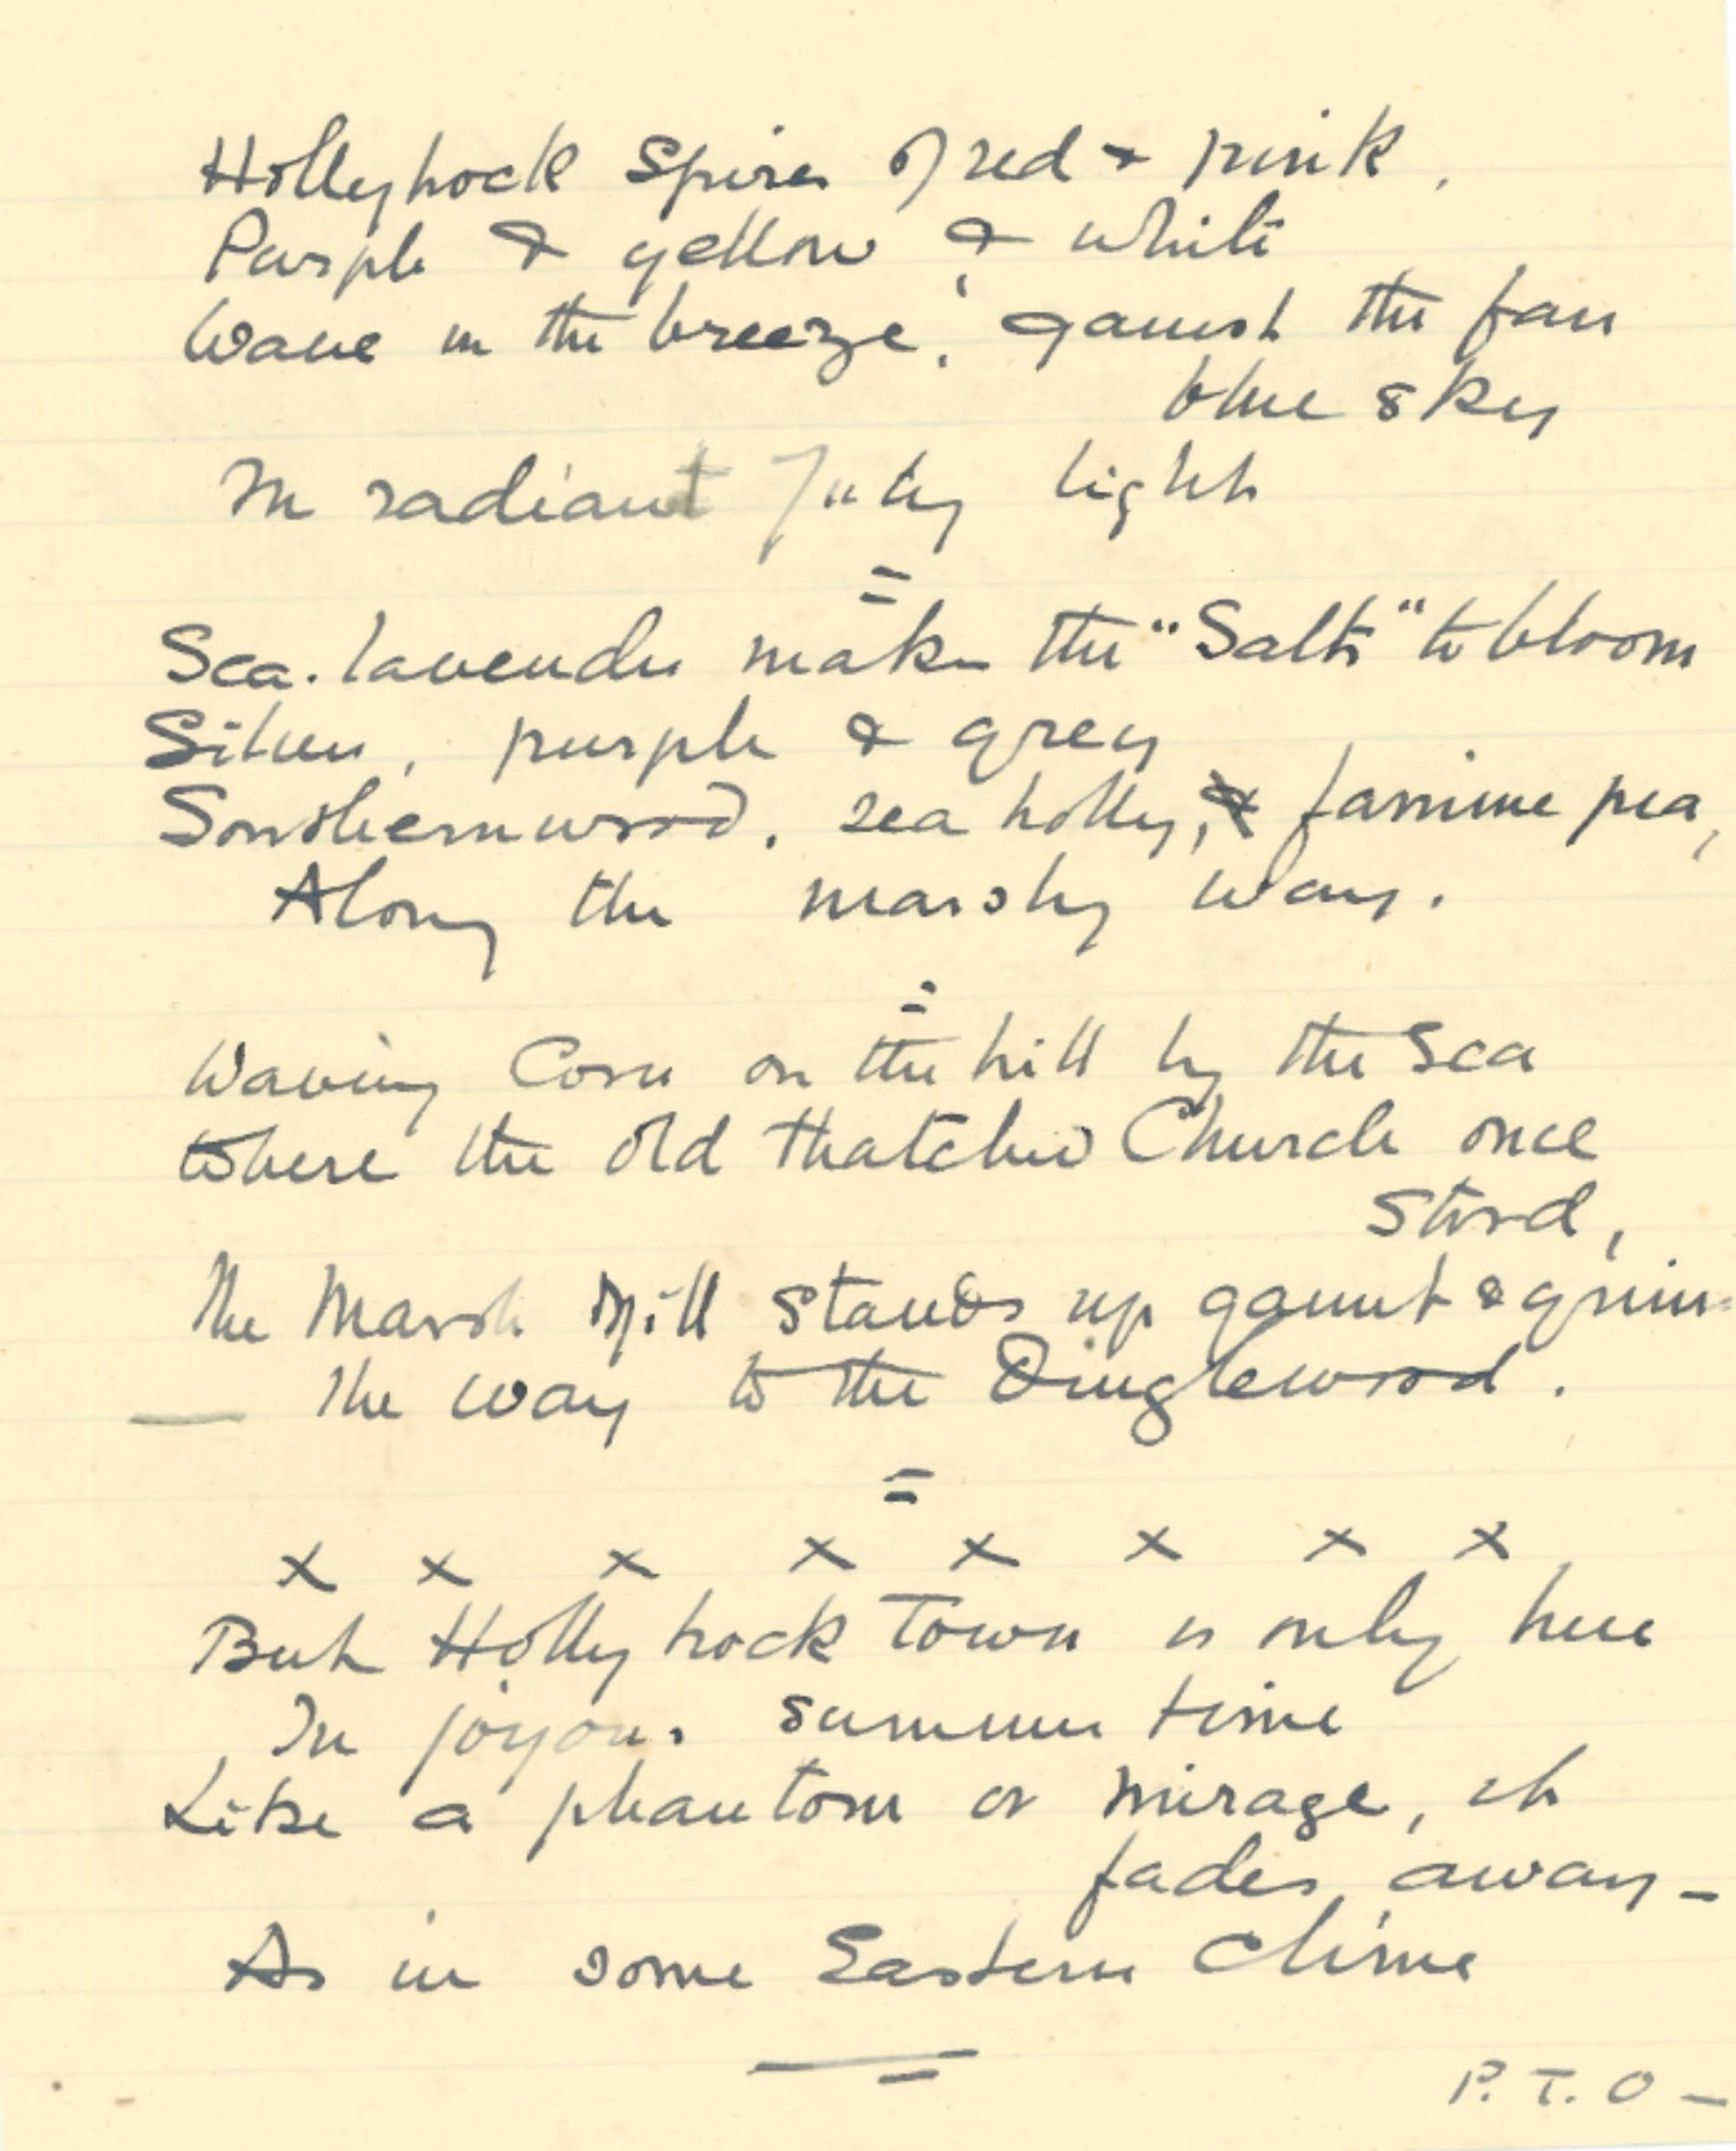 Hollyhock Spires of red & pink,
Purple & yellow & white
Wave in the breeze, 'gainst the fair
blue sky
In radiant July light
=
Sea-lavender makes the "Salts" to bloom
Silver, purple & grey
Southernwood, sea holly, & famine pea,
Along the marshy way.
=
Waving Corn on the hill by the Sea
Where the old thatched Church once
stood,
The Marsh Mill stands up gaunt & grim
— The way to the Dinglewood.
=
x x x x x x x x
But Hollyhock Town is only here
In joyous summer time
Like a phantom or mirage, it
fades away –
As in some Eastern Clime
=
P.T.O –